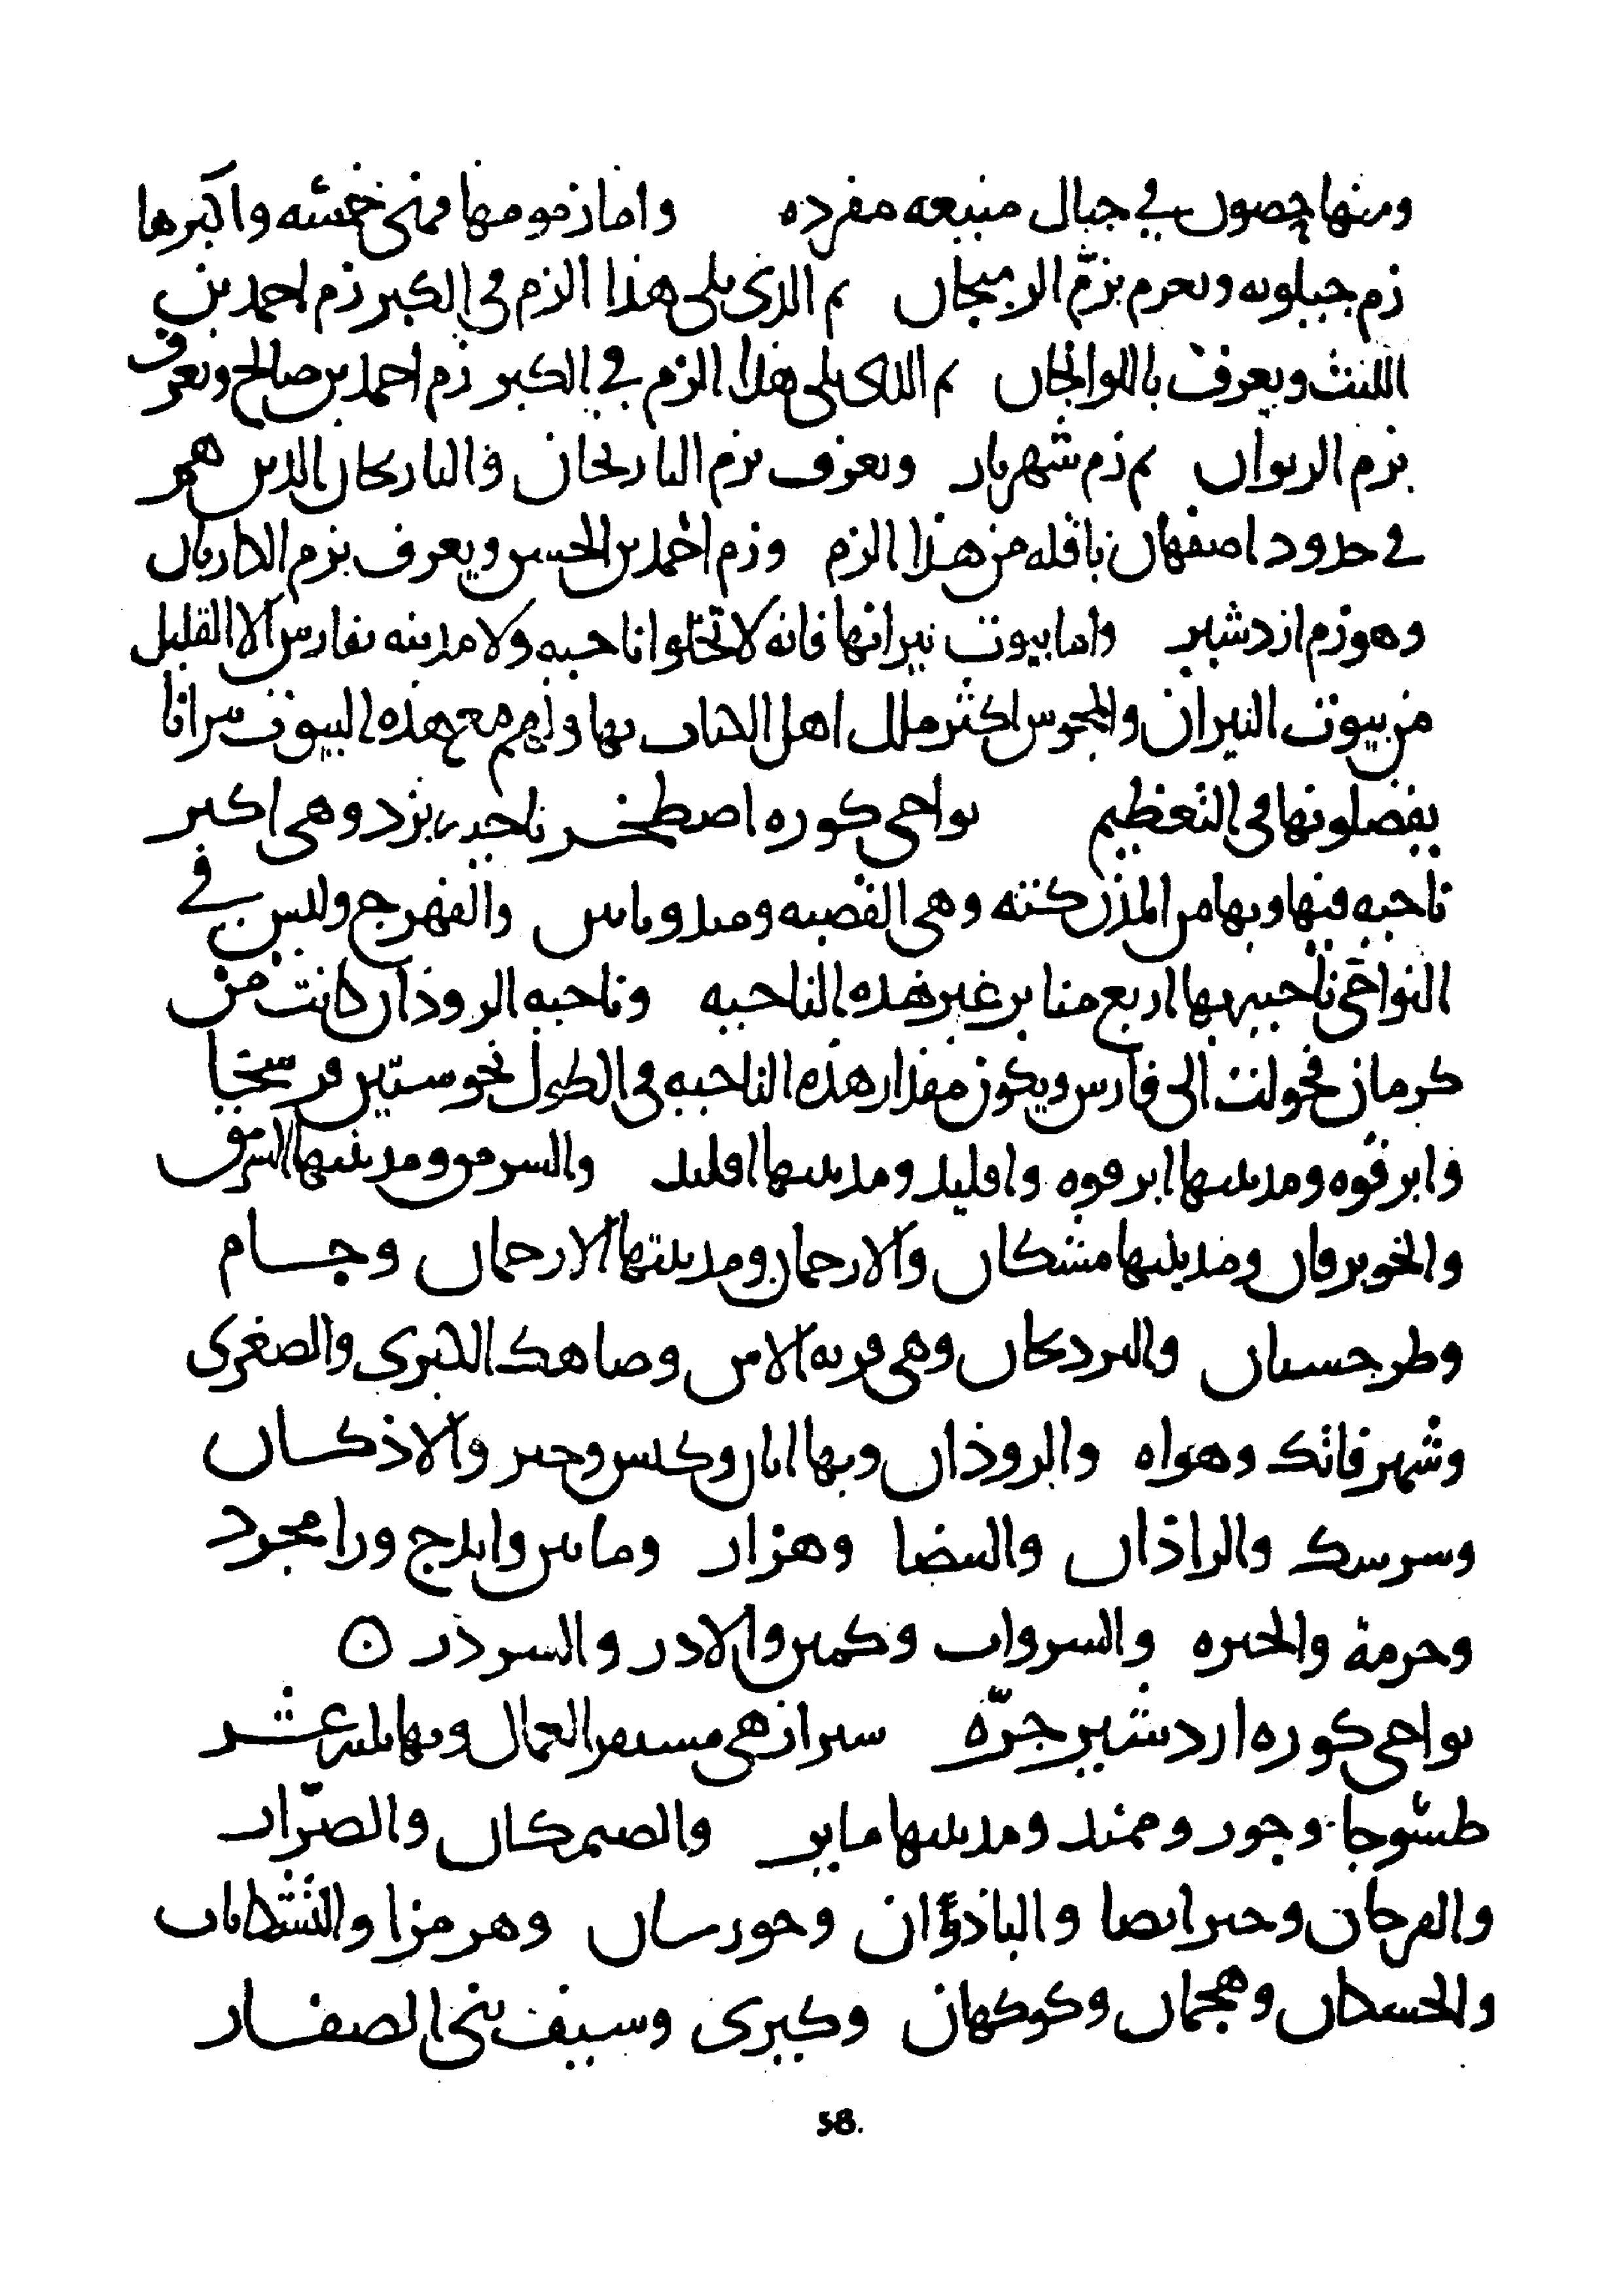 ومنها حصون في جبال منيعه مفرده واما زمومها فهي خمسه واكبرها
زم جيلويه ويعرف بزم الرميجان ثم الذي يلي هذا الزم في الكبر زم احمد بن
الليث ويعرف باللوالجان ثم الذي يلي هذا الزم في الكبر زم احمد بن صالح ويعرف
بزم الريوان ثم زم شهريار ويعرف بزم البازنجان والبازنجان الذين هم
في حدود اصفهان ناقله من هذا الزم وزم احمد بن الحسين ويعرف بزم الكاريان
وهو زم ازدشير واما بيوت نيرانها فانه لا تخلوا ناحيه ولا مدينه بفارس الا القليل
من بيوت النيران والمجوس اكثر ملل اهل الكتاب بها ولهم مع هذه البيوت نيرانا
يفضلونها في التعظيم نواحي كوره اصطخر ناحيه يزد وهي اكبر
ناحيه فيها وبها من المدن كثه وهي القصبه وميبد ونايين والفهرج وليس في
النواحي ناحيه بها اربع منابر غير هذه الناحيه وناحيه الروذان كانت من
كرمان فحولت الى فارس ويكون مقدار هذه الناحيه في الطول نحو ستين فرسخا
وابرقوه ومدينتها ابرقوه واقليد ومدينتها اقليد والسرمق ومدينتها السرمق
والخوبرقان ومدينتها مشكان والارجمان ومدينتها الارجمان وجارم
وطرخيسان والبردكان وهي قريه الاس وصاهك الكبرى والصغرى
وشهرفاتك وهراه والروذان وبها ابان وكلس وخبر والاذكان
وسرسك والراذان والبيضا وهزار وماين وايرج ورامجرد
وحرمة والحيره والسروات وكمين والارد والسرذر
نواحي كوره اردشير خره شيراز هي مستقر العمال وبها ثلثه عشر
طسوجا وجور وممند ومدينتها مابر والصيمكان والصرار
والفرجان وخبر ايضا والباذوان وخورستان وهرمزا والتشكانات
وهجمان وكوكهان وكبرى وسيف بني الصفار
58.